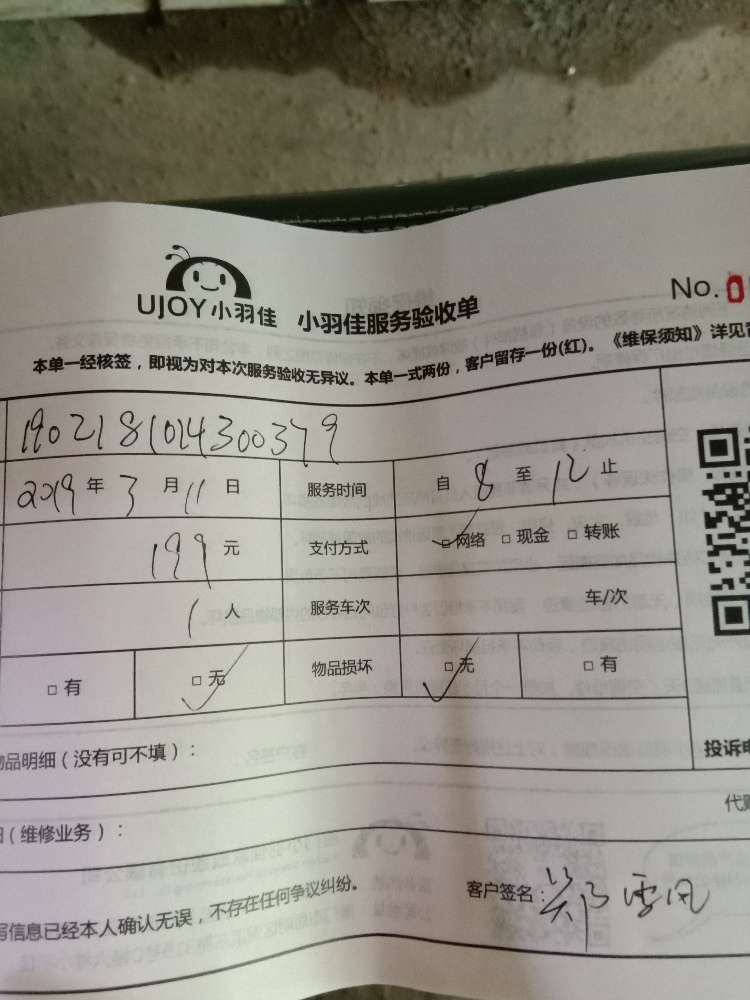 UJOY小羽佳 小羽佳服务验收单 No.0
本单一经核签，即视为对本次服务验收无异议。本单一式两份，客户留存一份(红)。《维保须知》详见
1902181014300379
2019年3月11日 服务时间 自8至12止
199元 支付方式 □网络 □现金 □转账
1人 服务车次 车/次
□有 □无 物品损坏 □无 □有
品明细（没有可不填）： 投诉
（维修业务）： 代
信息已经本人确认无误，不存在任何争议纠纷。 客户签名：